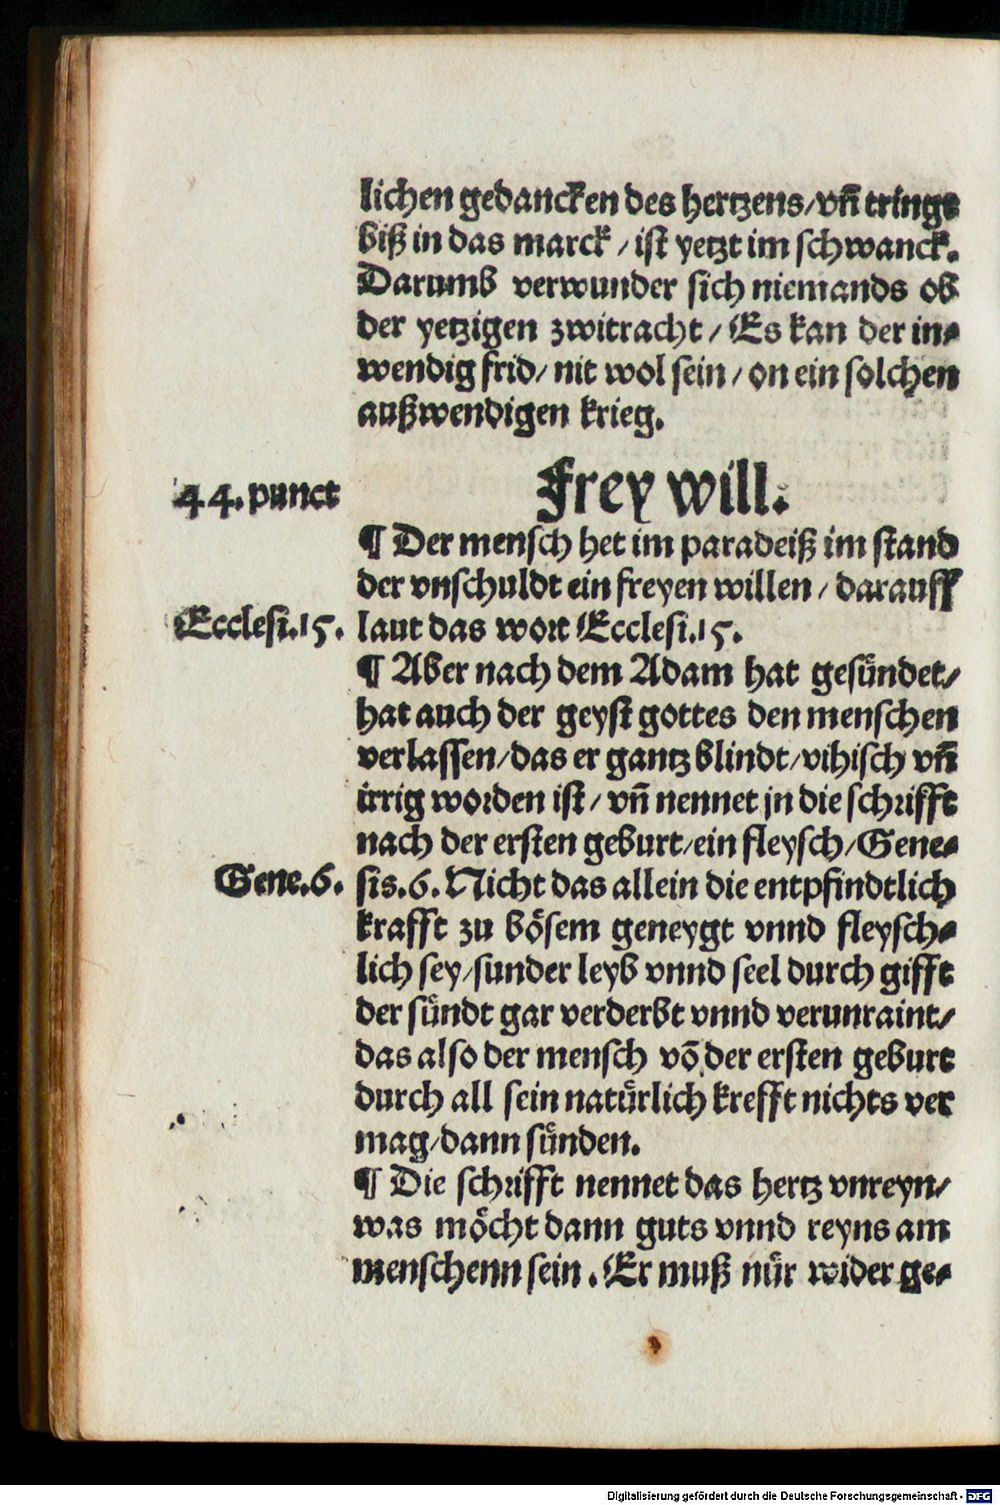 lichen gedancken des hertzens/vñ tringt
biß in das marck/ist yetzt im schwanck.
Darumb verwunder sich niemands ob
der yetzigen zwitracht/Es kan der in⸗
wendig frid/nit wol sein/on ein solchen
außwendigen krieg.
44. punct
Frey will.
¶ Der mensch het im paradeiß im stand
der vnschuldt ein freyen willen/darauff
Ecclesi.15.
laut das wort Ecclesi.15.
¶ Aber nach dem Adam hat gesündet/
hat auch der geyst gottes den menschen
verlassen/das er gantz blindt/vihisch vñ
irrig worden ist/vñ nennet jn die schrifft
nach der ersten geburt/ein fleysch/Gene⸗
Gene.6.
sis.6. Nicht das allein die entpfindtlich
krafft zu bösem geneygt vnnd fleysch⸗
lich sey/sunder leyb vnnd seel durch gifft
der sündt gar verderbt vnnd verunraint/
das also der mensch võ der ersten geburt
durch all sein natürlich krefft nichts ver
mag/dann sünden.
¶ Die schrifft nennet das hertz vnreyn/
was möcht dann guts vnnd reyns am
menschenn sein. Er muß nür wider ge⸗
Digitalisierung gefördert durch die Deutsche Forschungsgemeinschaft - DFG